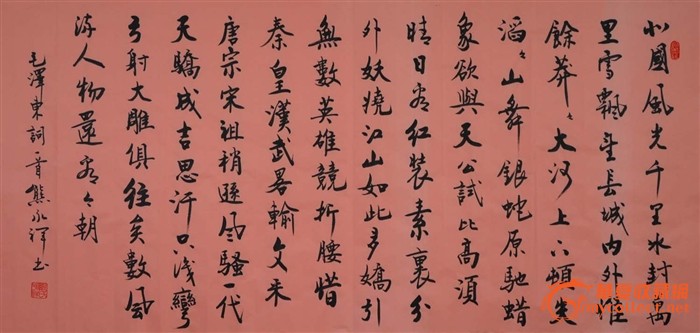 北國風光千里冰封萬
里雪飄望長城內外惟
餘莽々大河上下頓失
滔々山舞銀蛇原馳蜡
象欲與天公試比高須
晴日看紅裝素裹分
外妖嬈江山如此多嬌引
無數英雄競折腰惜
秦皇漢武畧輸文采
唐宗宋祖稍遜風騷一代
天驕成吉思汗只識彎
弓射大雕俱往矣數風
流人物還看今朝
毛澤東詞一首熊永祥书